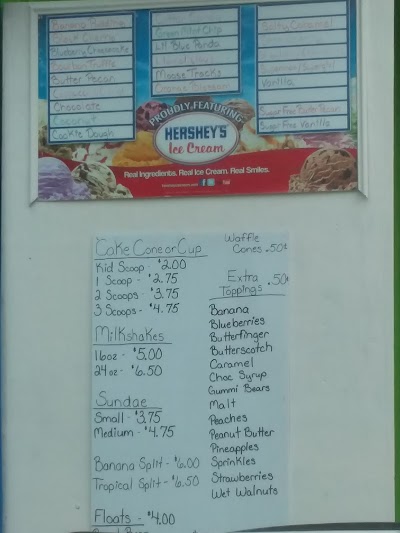 Banana Pudding
Black Cherry
Blueberry Cheesecake
Bourbon Truffle
Butter Pecan
Chocolate
Coconut
Cookie Dough
Green Mint Chip
Lil Blue Panda
Moose Tracks
Orange
Salty Caramel
Vanilla
Sugar Free Butter Pecan
Sugar Free Vanilla
PROUDLY FEATURING
HERSHEY'S
Ice Cream
Real Ingredients. Real Ice Cream. Real Smiles.
Cake Cone or Cup
Kid Scoop - $2.00
1 Scoop - $2.75
2 Scoops - $3.75
3 Scoops - $4.75
Milkshakes
16oz - $5.00
24oz - $6.50
Sundae
Small - $3.75
Medium - $4.75
Banana Split - $6.00
Tropical Split - $6.50
Floats - $4.00
Waffle
Cones .50¢
Extra
Toppings .50¢
Banana
Blueberries
Butterfinger
Butterscotch
Caramel
Choc Syrup
Gummi Bears
Malt
Peaches
Peanut Butter
Pineapples
Sprinkles
Strawberries
Wet Walnuts